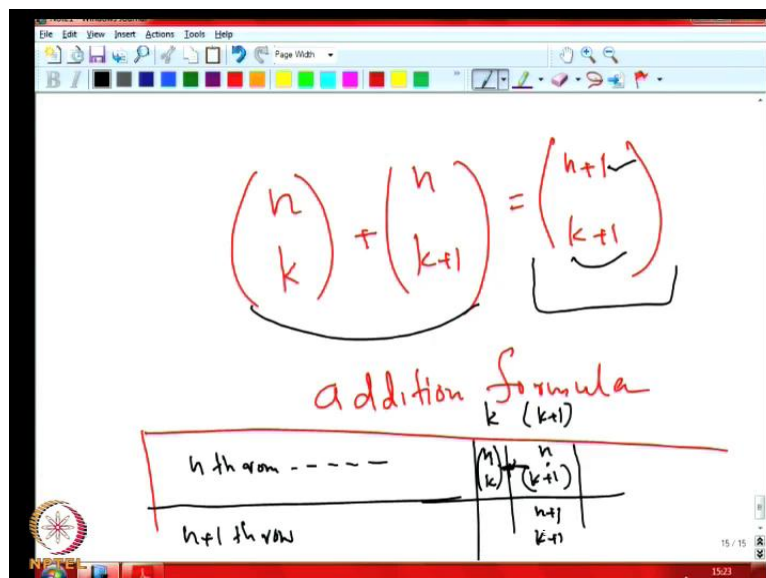 File Edit View Insert Actions Tools Help
Page Width
B I
(n k) + (n k+1) = (n+1 k+1)
addition formula
k (k+1)
n th row ----- (n k) + (n k+1)
n+1 th row n+1 k+1
15 / 15
NPTEL
15:23